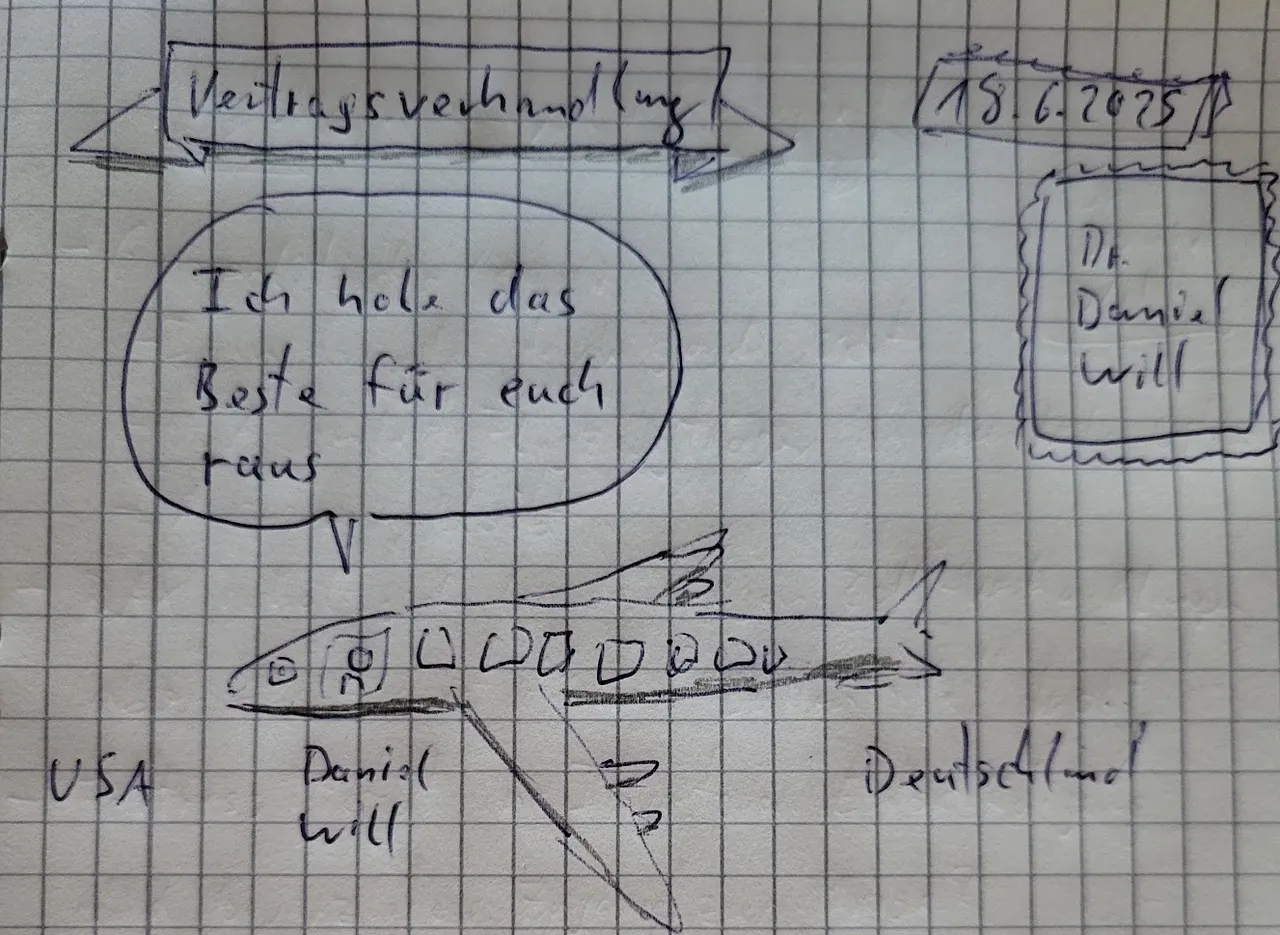 Vertragsverhandlung
18.6.2025
Dr.
Daniel
Will
Ich hole das
Beste für euch
raus
USA
Daniel
Will
Deutschland